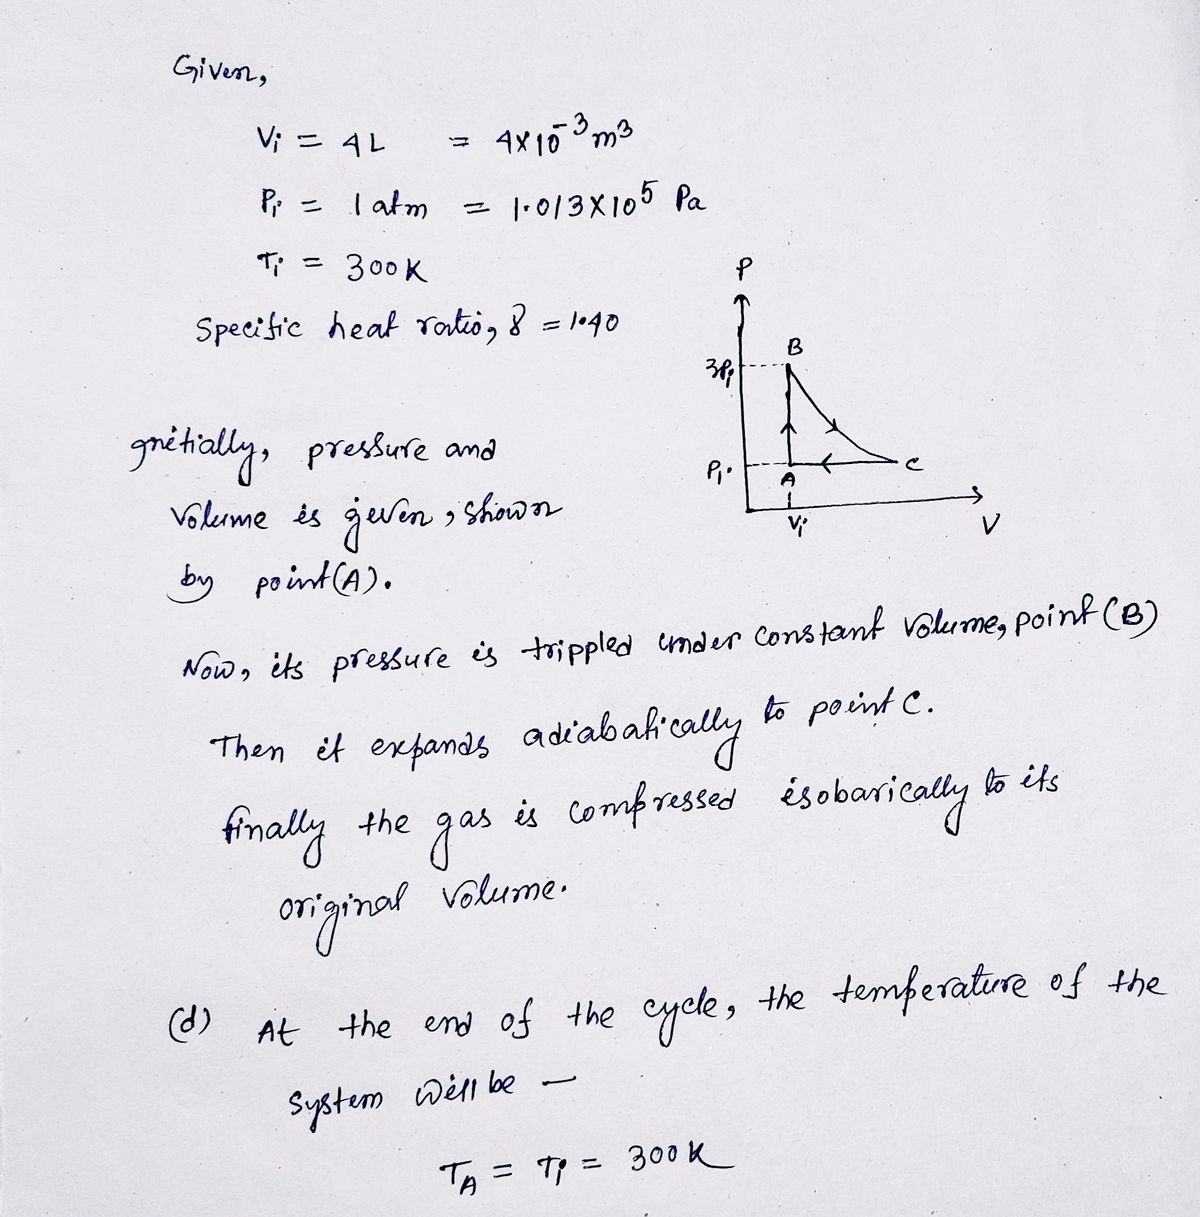 Given,
Vi = 4L = 4×10⁻³ m³
Pi = 1 atm = 1.013×10⁵ Pa
Ti = 300K
Specific heat ratio, γ = 1.40
P
3Pi
B
Pi
A
C
Vi
V
Initially, pressure and
volume is given, shown
by point (A).
Now, its pressure is trippled under constant volume, point (B)
Then it expands adiabatically to point C.
finally the gas is compressed isobarically to its
original volume.
(d) At the end of the cycle, the temperature of the
system will be —
T_A = Ti = 300K